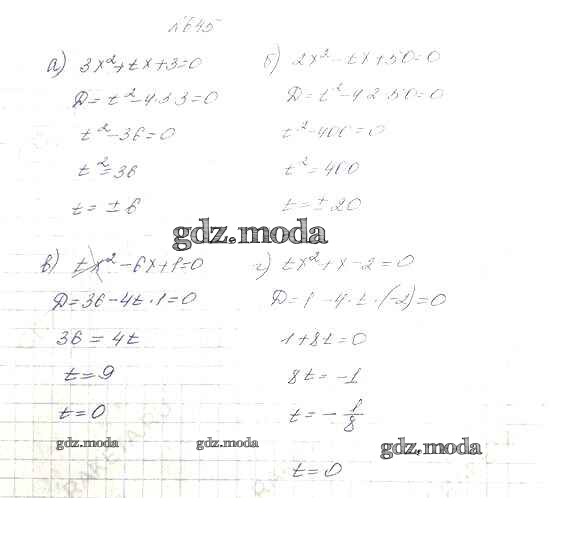 №645
а) 3x²+tx+3=0
D=t²-4·3·3=0
t²-36=0
t²=36
t=±6
б) 2x²-tx+50=0
D=t²-4·2·50=0
t²-400=0
t²=400
t=±20
gdz.moda
в) tx²-6x+1=0
D=36-4t·1=0
36=4t
t=9
t=0
г) tx²+x-2=0
D=1-4·t·(-2)=0
1+8t=0
8t=-1
t=-1/8
t=0
gdz.moda
gdz.moda
gdz.moda